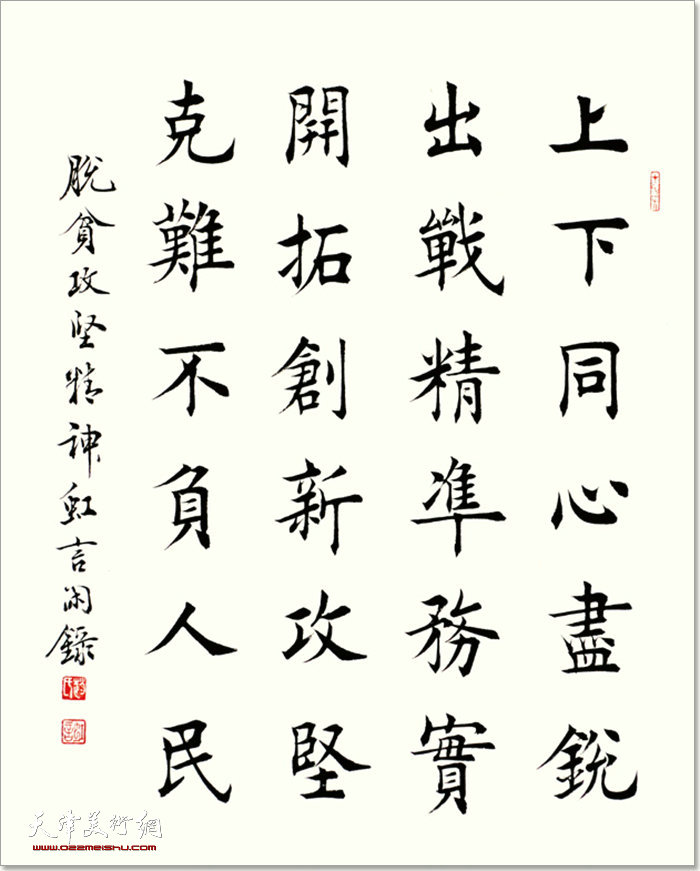 上下同心盡銳
出戰精準務實
開拓創新攻堅
克難不負人民
脫貧攻坚精神虹言闲錄
天津美術網
www.022meishu.com